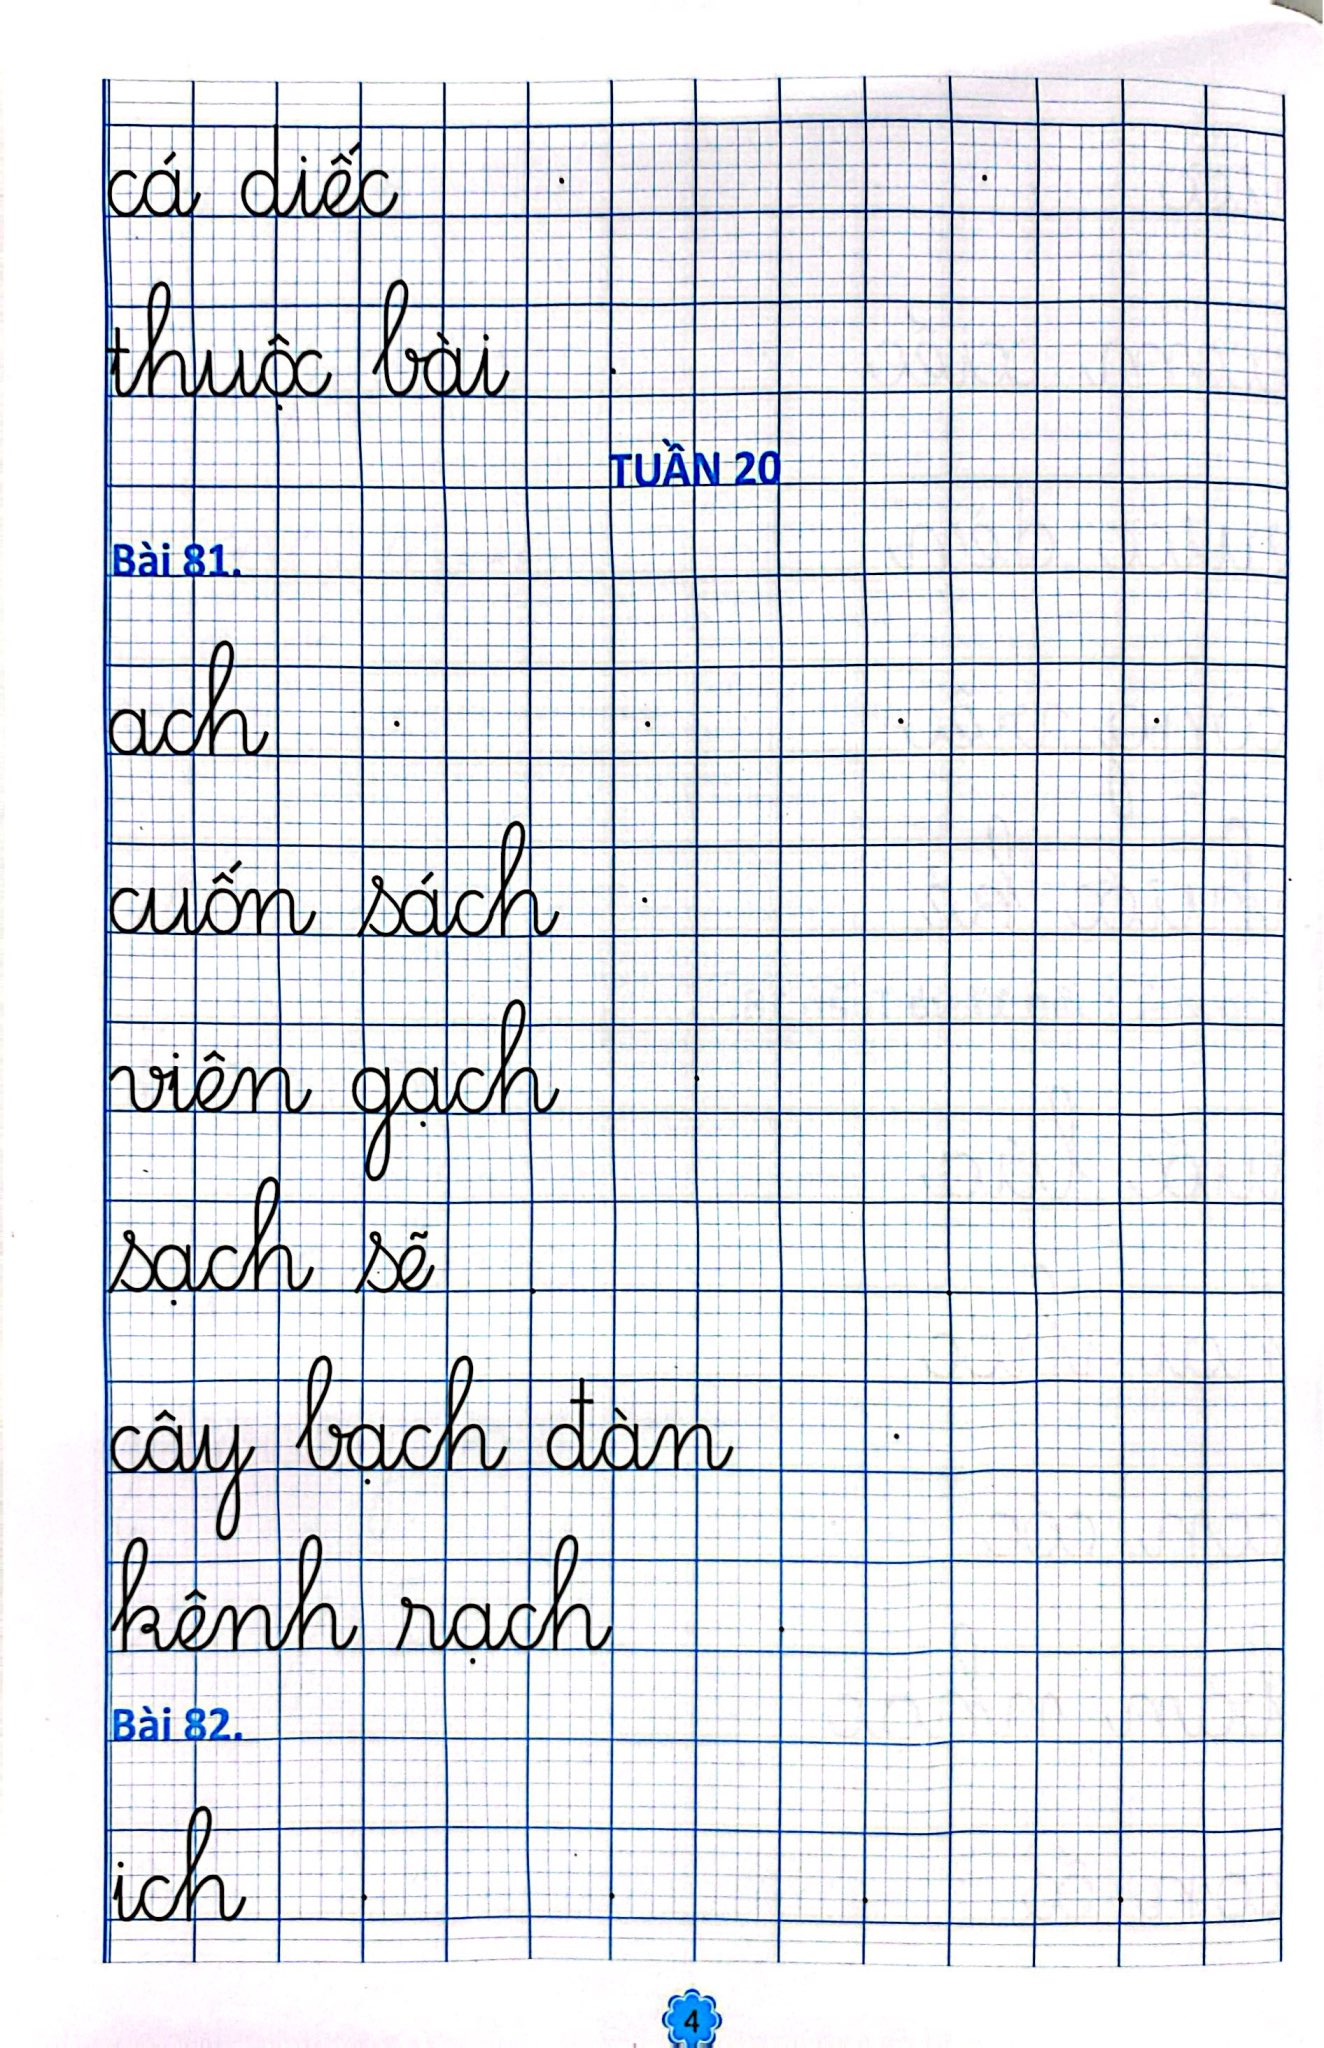 cá diếc
thuộc bài
TUẦN 20
Bài 81.
ach
cuốn sách
viên gạch
sạch sẽ
cây bạch đàn
kênh rạch
Bài 82.
ich
4